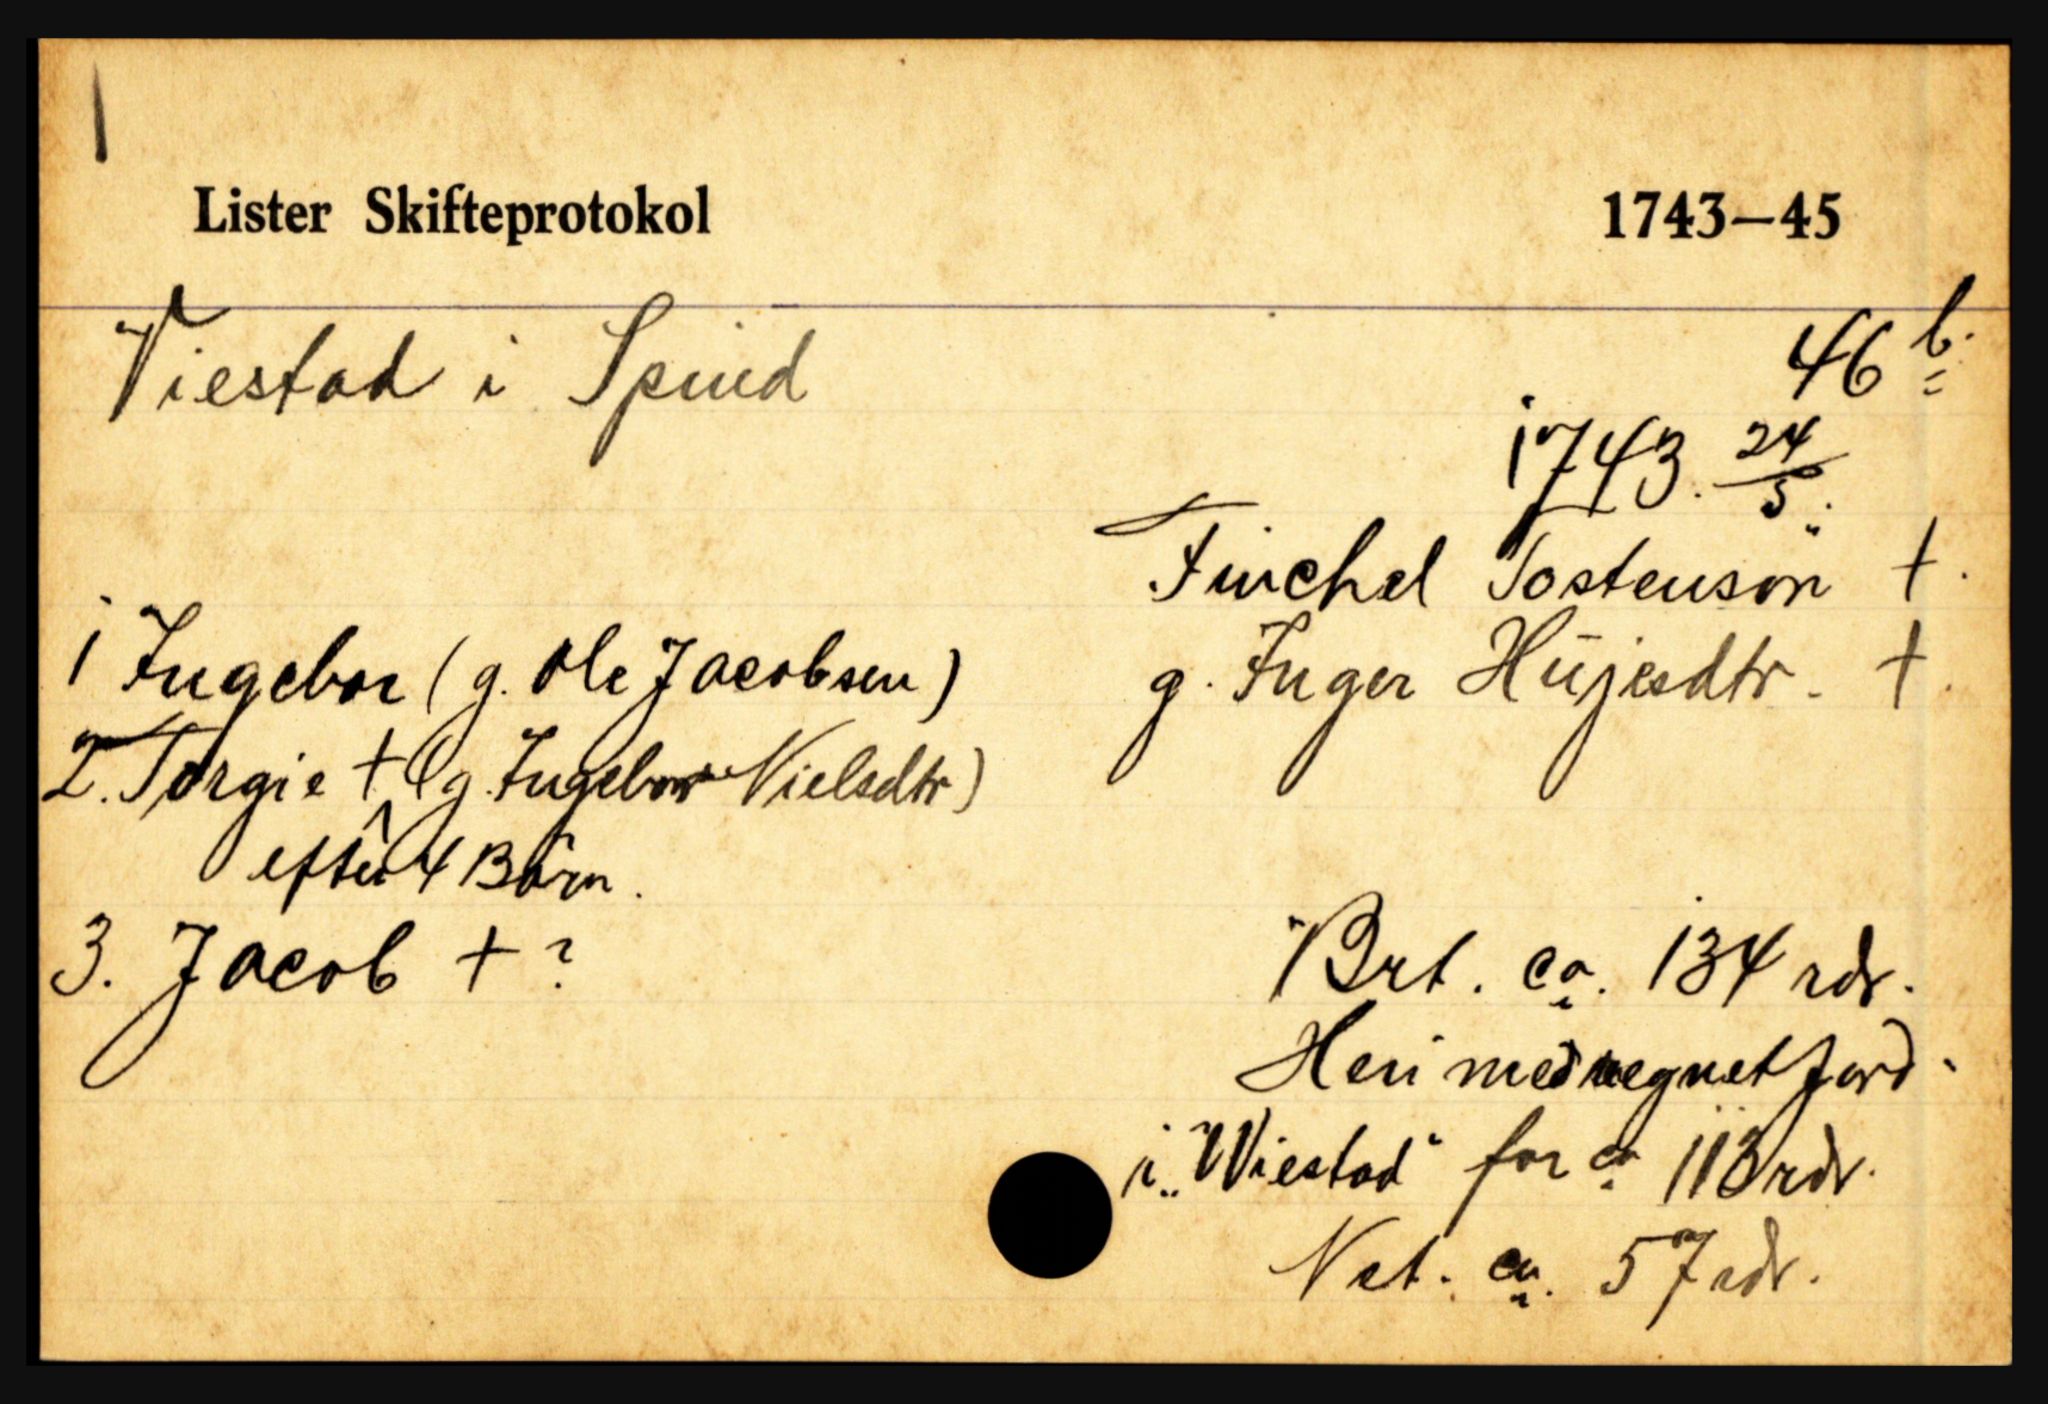 Lister Skifteprotokol 1743—45
Viestad i Spind
46 b.
1743. 24/5.
Tinchel Tostenson †.
g. Inger Hüjesdtr. †.
1 Ingebor (g. Ole Jacobsen)
2. Torgie † (g. Ingebor Nielsdtr)
efter 4 Børn.
3. Jacob †?
Brt. ca. 134 rdr.
Heri medregnet Jord
i „Wiestad" for ca 113 rdr.
Net. ca. 57 rdr.